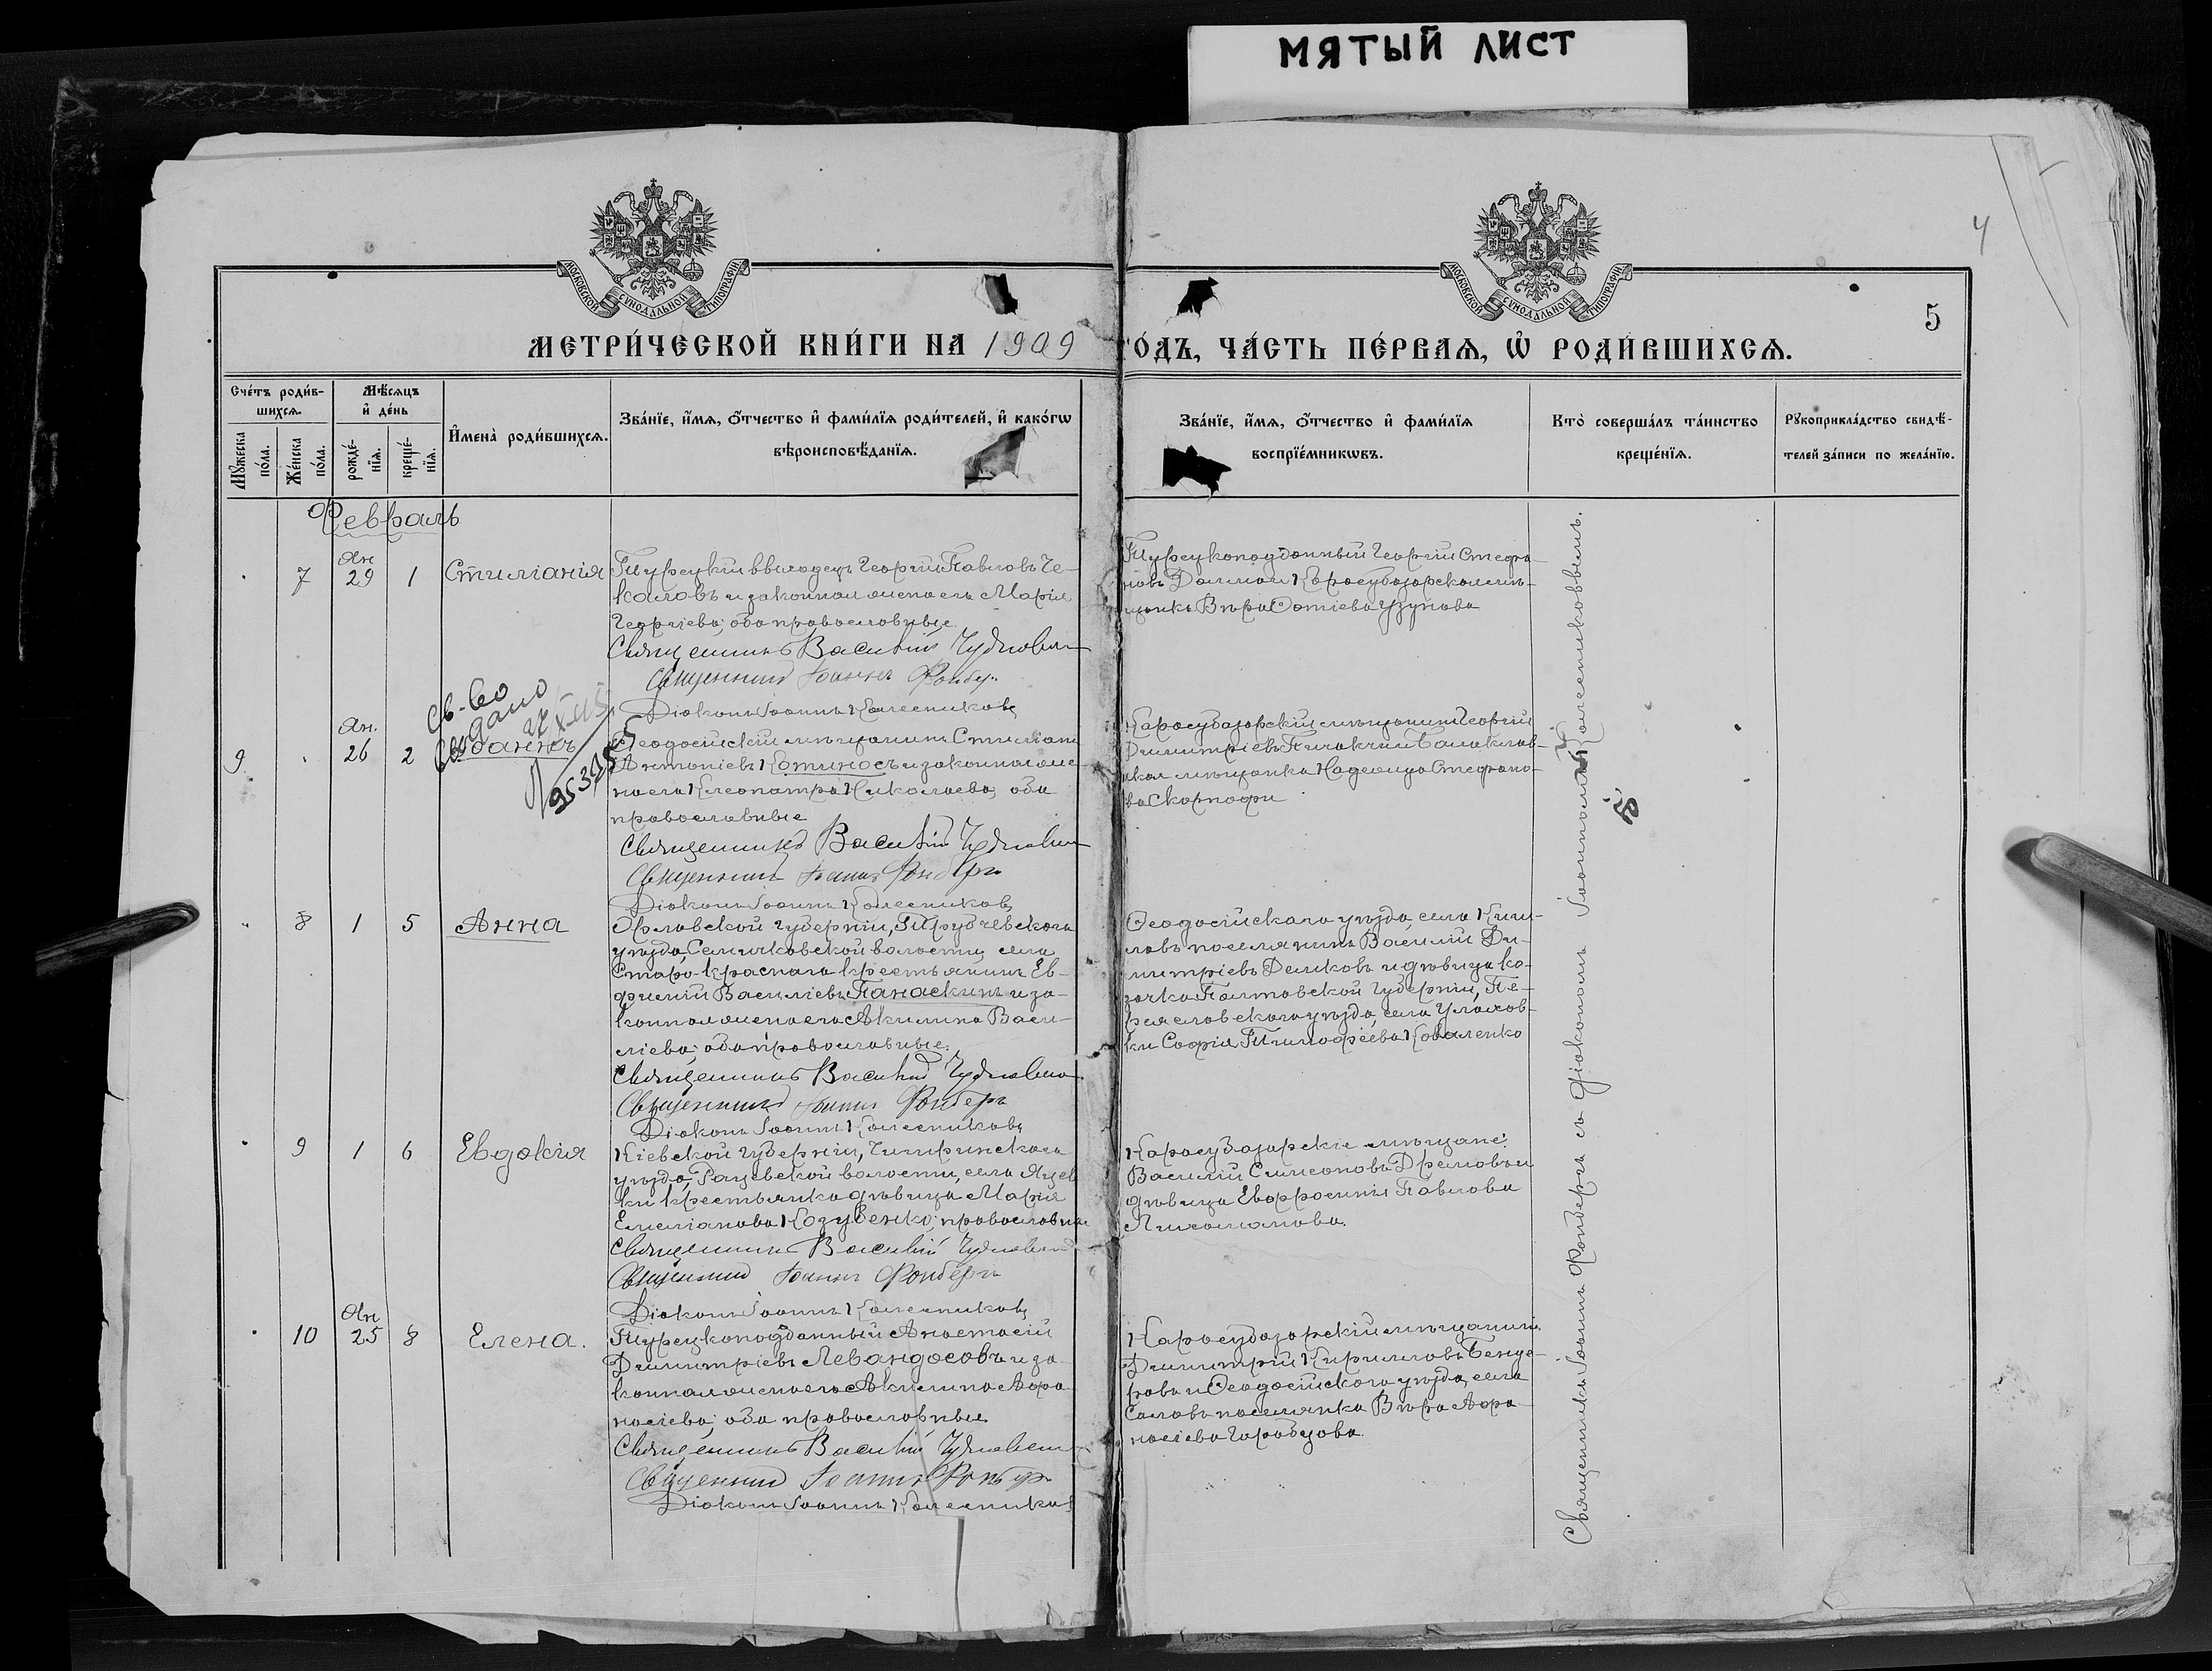 МЯТЫЙ ЛИСТ
4
5
МОСКОВСКОЙ СѴНОДАЛЬНОЙ ТИПОГРАФІИ
МОСКОВСКОЙ СѴНОДАЛЬНОЙ ТИПОГРАФІИ
МЕТРИ́ЧЕСКОЙ КНИ́ГИ НА 1909
ГО́ДЪ, ЧА́СТЬ ПЕ́РВАѦ, Ѡ҆ РОДИ́ВШИХСѦ.
Сче́тъ роди́в-
шихсѧ.
Мѣ́сяцъ
и҆ де́нь
Мꙋ́жеска по́ла.
Же́нска по́ла.
рожде́-нїѧ.
креще́-нїѧ.
И҆мена̀ роди́вшихсѧ.
Зва́нїе, и҆́мѧ, ѻ҆́тчество и҆ фами́лїѧ роди́телей, и҆ како́гѡ
вѣроисповѣ́данїѧ.
Зва́нїе, и҆́мѧ, ѻ҆́тчество и҆ фами́лїѧ
воспрїе́мникѡвъ.
Кто̀ соверша́лъ та́инство
креще́нїѧ.
Рꙋкоприкла́дство свидѣ́-
телей за́писи по жела́нїю.
Февраль
Ян.
7 29 1 Стиліанія
Турецкій выходецъ Георгій Павловъ Че-
каловъ и законная жена его Марія
Георгіева; оба православные.
Священникъ Василій
Священникъ Іоаннъ Фонберъ
Діаконъ Іоаннъ Колесниковъ
Турецкоподданный Георгій Стефа-
новъ и Карасубазарская мѣ-
щанка Вѣра Фотіева Узунова
Св-во
выдано
95395
Ян.
9 26 2 Іоаннъ
Ѳеодосійскій мѣщанинъ Стиліанъ
Антоніевъ Котиносъ и законная же-
на его Клеопатра Николаева, оба
православные
Священникъ Василій
Священникъ Іоаннъ Фонберъ
Діаконъ Іоаннъ Колесниковъ
Карасубазарскій мѣщанинъ Георгій
Димитріевъ и Балаклав-
ская мѣщанка Надежда Стефано-
ва Скарпофи
8 1 5 Анна
Орловской губерніи, Трубчевскаго
уѣзда, Селичковской волости, села
Старо-Краснаго крестьянинъ Ев-
фимій Василіевъ Панаскинъ и за-
конная жена его Акилина Васи-
ліева; оба православные.
Священникъ Василій
Священникъ Іоаннъ Фонберъ
Діаконъ Іоаннъ Колесниковъ
Ѳеодосійскаго уѣзда, села
поселянинъ Василій Ди-
митріевъ Деликовъ и дѣвица ка-
зачка Полтавской губерніи, Пе-
реяславскаго уѣзда, села
Софія Тимофеева Коваленко
9 1 6 Евдокія
Кіевской губерніи, Чигиринскаго
уѣзда, Рацевской волости, села Яцев-
ки крестьянка дѣвица Марія
Емиліанова Козубенко; православная
Священникъ Василій
Священникъ Іоаннъ Фонберъ
Діаконъ Іоаннъ Колесниковъ
Карасубазарскіе мѣщане:
Василій Симеоновъ и
дѣвица Евфросинія Павлова
Лихоманова.
Ян
10 25 8 Елена.
Турецкоподданный Анастасій
Димитріевъ Левандосовъ и за-
конная жена его Акилина Афа-
насіева; оба православные.
Священникъ Василій
Священникъ Іоаннъ Фонберъ
Діаконъ Іоаннъ Колесниковъ
Карасубазарскій мѣщанинъ
Димитрій Кирилловъ
и Ѳеодосійскаго уѣзда, села
Саловъ поселянка Вѣра Афа-
насіева Горбцова.
Священникъ Іоаннъ Фонберъ съ діакономъ Іоанномъ Колесниковымъ.